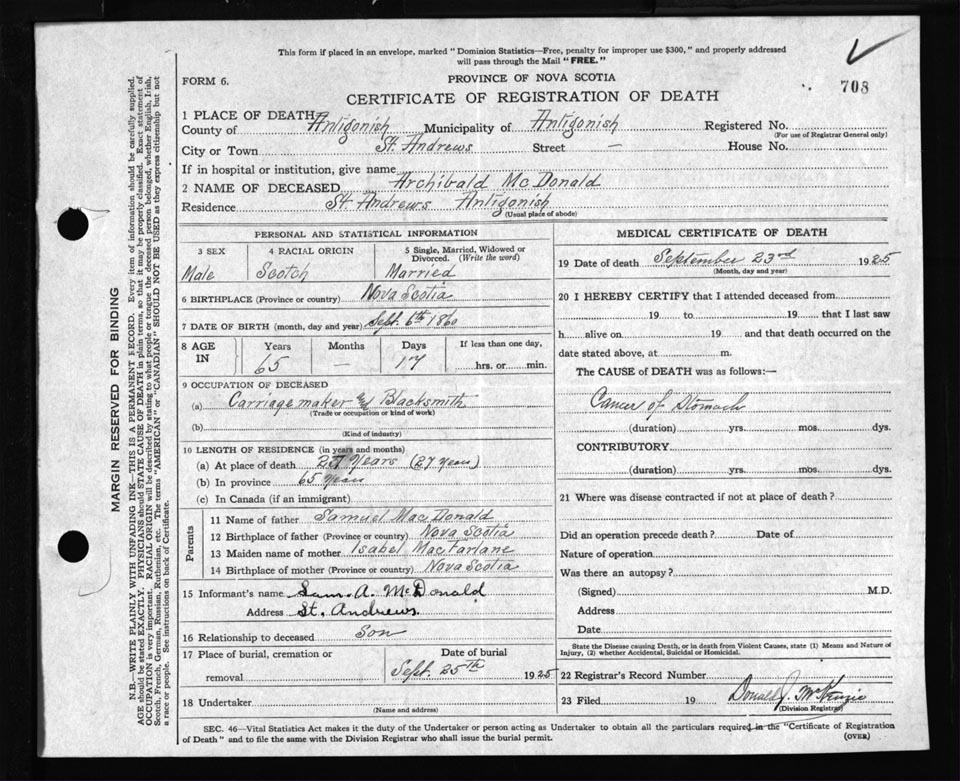 This form if placed in an envelope, marked "Dominion Statistics—Free, penalty for improper use $300," and properly addressed
will pass through the Mail "FREE."
FORM 6.
PROVINCE OF NOVA SCOTIA
708
CERTIFICATE OF REGISTRATION OF DEATH
1 PLACE OF DEATH
County of Antigonish Municipality of Antigonish Registered No.
(For use of Registrar General only)
City or Town St. Andrews Street — House No.
If in hospital or institution, give name
2 NAME OF DECEASED Archibald McDonald
Residence St. Andrews Antigonish
(Usual place of abode)
PERSONAL AND STATISTICAL INFORMATION
3 SEX 4 RACIAL ORIGIN 5 Single, Married, Widowed or
Divorced. (Write the word)
Male Scotch Married
6 BIRTHPLACE (Province or country) Nova Scotia
7 DATE OF BIRTH (month, day and year) Sept. 6th 1860
8 AGE IN Years Months Days If less than one day,
65 — 17 hrs. or min.
9 OCCUPATION OF DECEASED
(a) Carriage maker and Blacksmith
(Trade or occupation or kind of work)
(b)
(Kind of industry)
10 LENGTH OF RESIDENCE (in years and months)
(a) At place of death 27 Years (27 years)
(b) In province 65 Years
(c) In Canada (if an immigrant)
Parents
11 Name of father Samuel MacDonald
12 Birthplace of father (Province or country) Nova Scotia
13 Maiden name of mother Isabel MacFarlane
14 Birthplace of mother (Province or country) Nova Scotia
15 Informant's name Sam. A. McDonald
Address St. Andrews.
16 Relationship to deceased Son
17 Place of burial, cremation or Date of burial
removal Sept. 25th 1925
18 Undertaker
(Name and address)
MEDICAL CERTIFICATE OF DEATH
19 Date of death September 23rd 1925
(Month, day and year)
20 I HEREBY CERTIFY that I attended deceased from
19 to 19 that I last saw
h alive on 19 and that death occurred on the
date stated above, at m.
The CAUSE of DEATH was as follows:—
Cancer of Stomach
(duration) yrs. mos. dys.
CONTRIBUTORY
(duration) yrs. mos. dys.
21 Where was disease contracted if not at place of death?
Did an operation precede death? Date of
Nature of operation
Was there an autopsy?
(Signed) M.D.
Address
Date
State the Disease causing Death, or in death from Violent Causes, state (1) Means and Nature of
Injury, (2) whether Accidental, Suicidal or Homicidal.
22 Registrar's Record Number
23 Filed 19 Donald J. McKenzie
(Division Registrar)
SEC. 46—Vital Statistics Act makes it the duty of the Undertaker or person acting as Undertaker to obtain all the particulars required in the "Certificate of Registration
of Death" and to file the same with the Division Registrar who shall issue the burial permit.
(OVER)
MARGIN RESERVED FOR BINDING
N.B.—WRITE PLAINLY WITH UNFADING INK—THIS IS A PERMANENT RECORD. Every item of information should be carefully supplied.
AGE should be stated EXACTLY. PHYSICIANS should STATE CAUSE OF DEATH in plain terms, so that it may be properly classified. Exact statement of
OCCUPATION is very important. RACIAL ORIGIN will be described by stating to what people or tongue the deceased person belonged, whether English, Irish,
Scotch, French, German, Russian, Ruthenian, etc. The terms "AMERICAN" or "CANADIAN" SHOULD NOT BE USED as they express citizenship but not
a race or people. See instructions on back of Certificate.